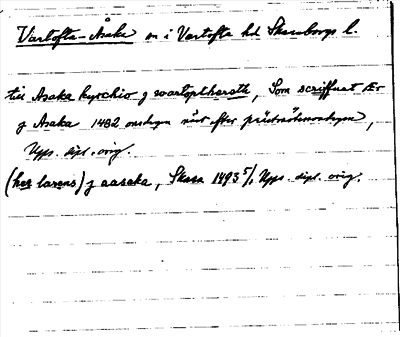 Vartofta-Åsaka sn i Vartofta hd Skaraborgs l.
till Asaka kyrchio j wartoptharæth, Som scriffnat Er
j Asaka 1482 onsdagen näst efter
Upps. dipl. orig.
(her larens) j aasaka, Skara 1493 5/1 Upps. dipl. orig.